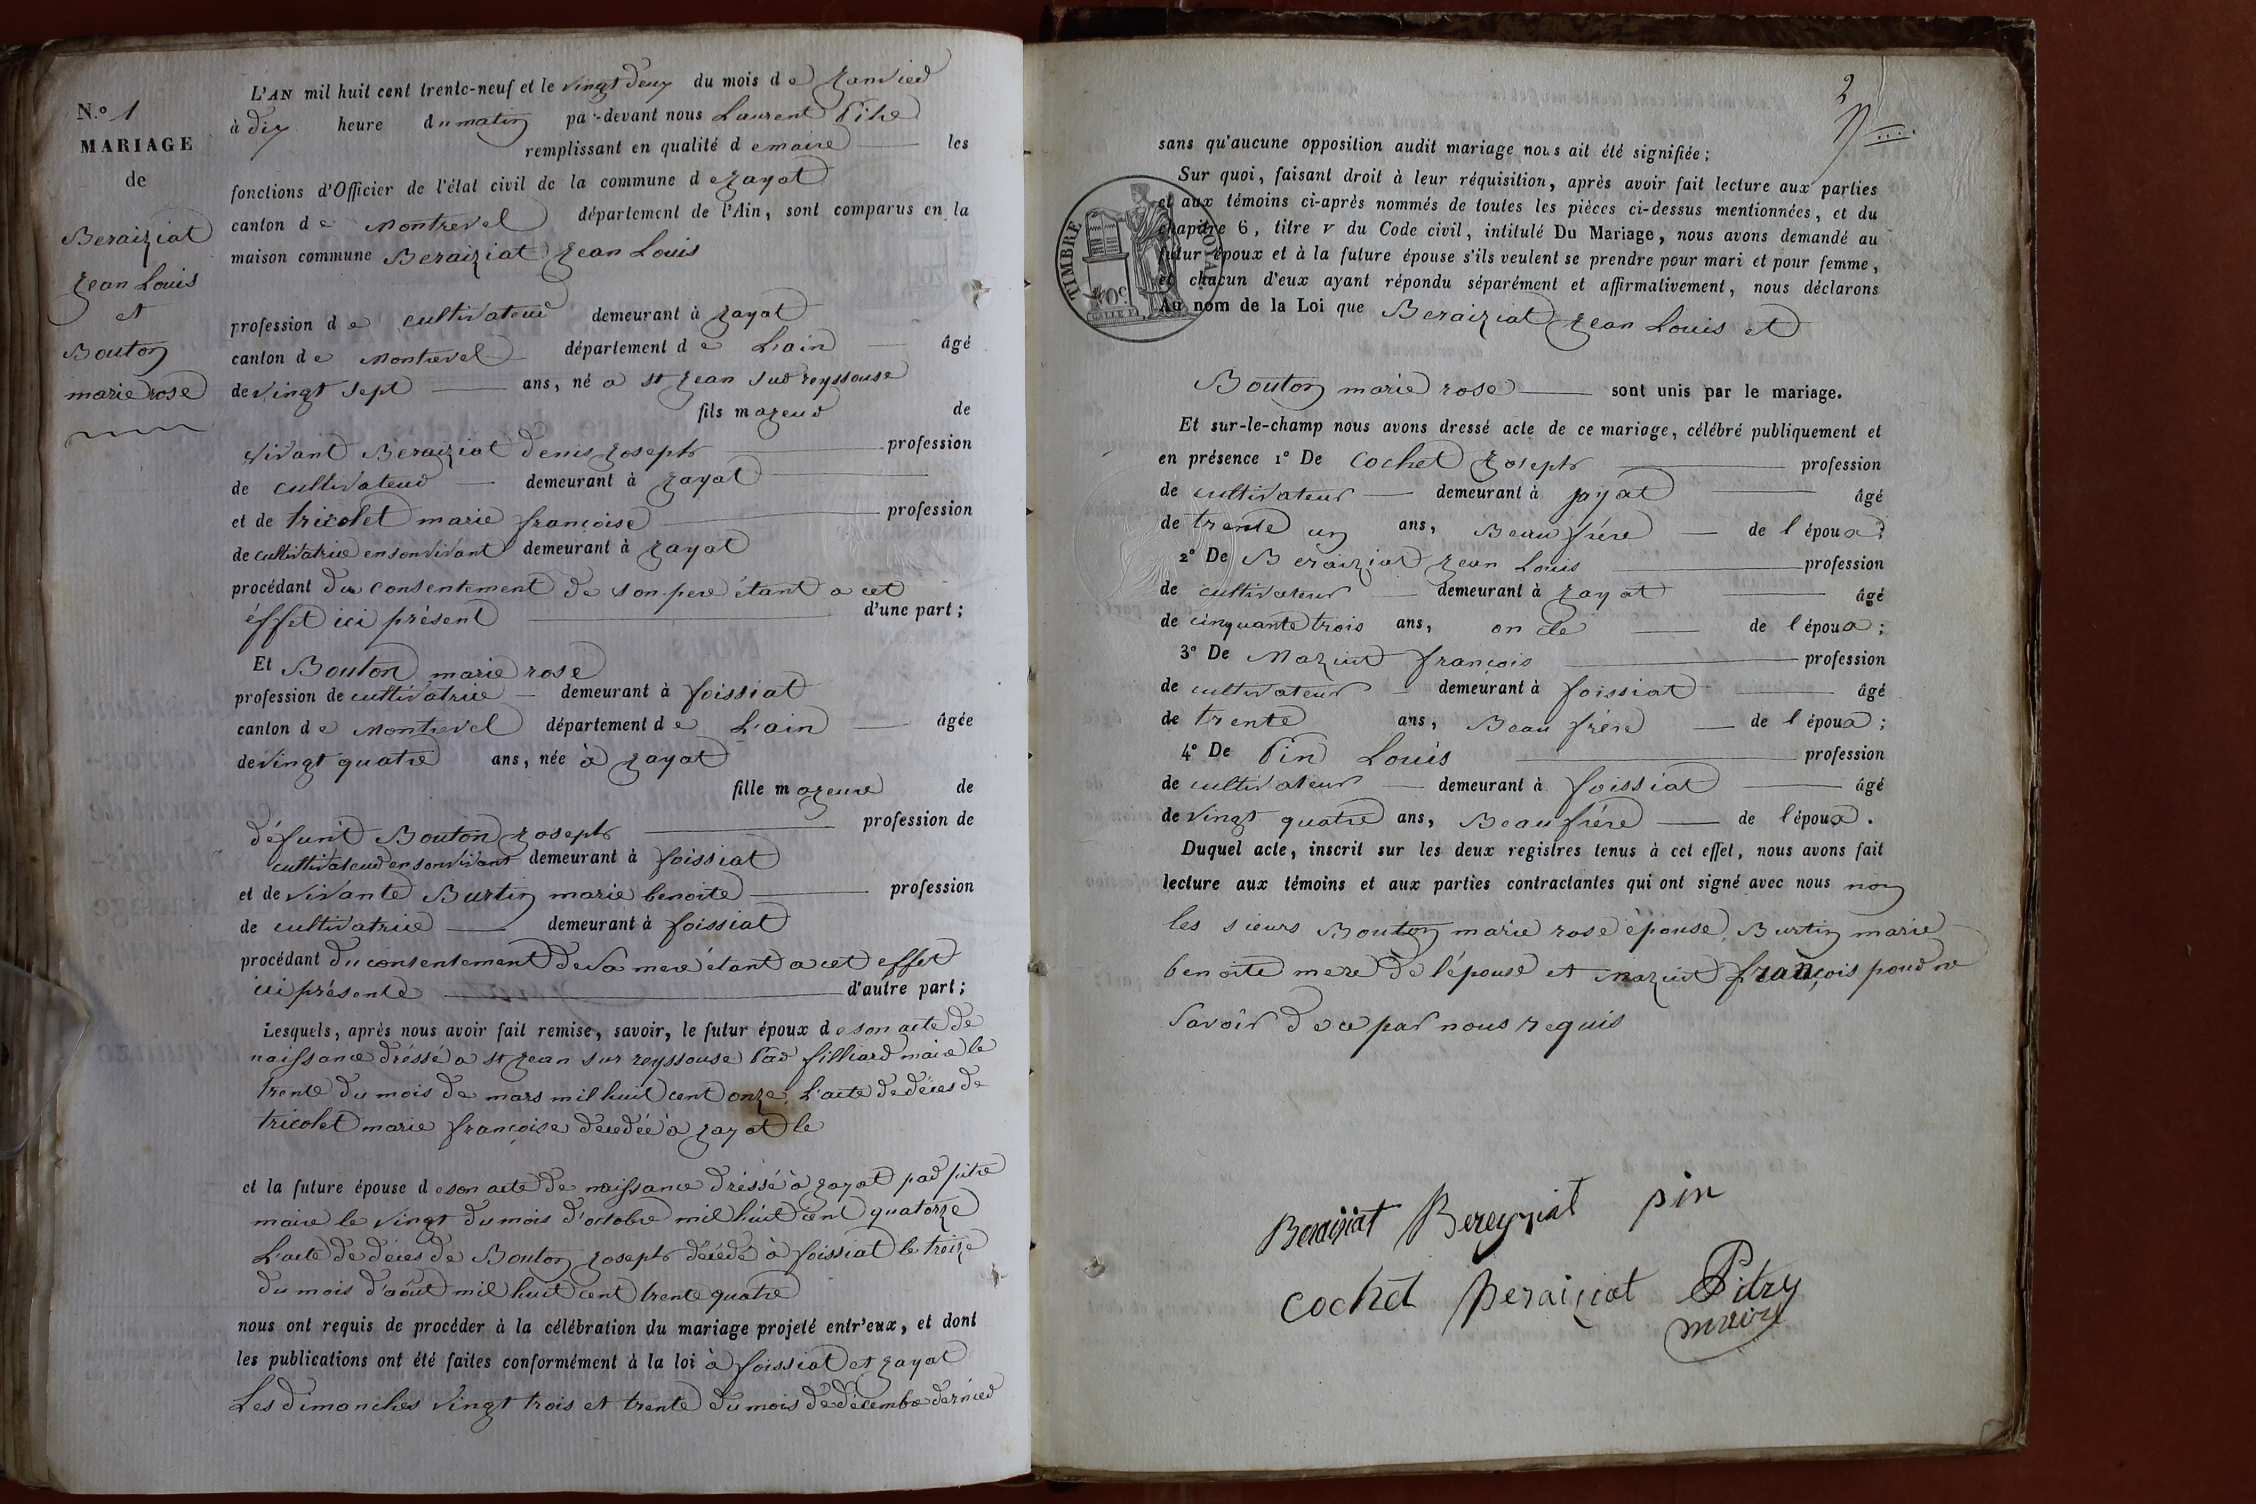 N.o 1
MARIAGE
de
Beraiziat
Jean Louis
et
Bouton
marie rose
L'AN mil huit cent trente-neuf et le vingt deux du mois de Janvier
à dix heure du matin par-devant nous Laurent Pitre
remplissant en qualité de maire les
fonctions d'Officier de l'état civil de la commune de Jayat
canton de Montrevel département de l'Ain, sont comparus en la
maison commune Beraiziat Jean Louis
profession de cultivateur demeurant à Jayat
canton de Montrevel département de L'ain âgé
de vingt sept ans, né a st Jean sur reyssouse
fils majeur de
vivant Beraiziat denis Joseph profession
de cultivateur demeurant à Jayat
et de tricolet marie françoise profession
de cultivatrice en son vivant demeurant à Jayat
procédant du consentement de son pere étant a cet
éffet ici présent d'une part;
Et Bouton marie rose
profession de cultivatrice demeurant à foissiat
canton de Montrevel département de L'ain âgée
de vingt quatre ans, née à Jayat
fille majeure de
défunt Bouton Joseph profession de
cultivateur en son vivant demeurant à foissiat
et de vivante Burtin marie benoite profession
de cultivatrice demeurant à foissiat
procédant du consentement de sa mere étant a cet effet
ici présente d'autre part;
Lesquels, après nous avoir fait remise, savoir, le futur époux de son acte de
naissance dréssé a st Jean sur reyssouse Par filliard maire le
trente du mois de mars mil huit cent onze, L'acte de décés de
tricolet marie françoise décedée à Jayat le
et la future épouse de son acte de naissance dréssé à Jayat par pitre
maire le vingt du mois d'octobre mil huit cent quatorze
L'acte de décés de Bouton Joseph décédé à foissiat le treize
du mois d'août mil huit cent trente quatre
nous ont requis de procéder à la célébration du mariage projeté entr'eux, et dont
les publications ont été faites conformément à la loi à foissiat et Jayat
Les dimanches vingt trois et trente du mois de décembre dernier
2
sans qu'aucune opposition audit mariage nous ait été signifiée;
Sur quoi, faisant droit à leur réquisition, après avoir fait lecture aux parties
et aux témoins ci-après nommés de toutes les pièces ci-dessus mentionnées, et du
chapitre 6, titre v du Code civil, intitulé Du Mariage, nous avons demandé au
futur époux et à la future épouse s'ils veulent se prendre pour mari et pour femme,
et chacun d'eux ayant répondu séparément et affirmativement, nous déclarons
Au nom de la Loi que Beraiziat Jean Louis et
TIMBRE ROYAL
Bouton marie rose sont unis par le mariage.
Et sur-le-champ nous avons dressé acte de ce mariage, célébré publiquement et
en présence 1° De Cochet Joseph profession
de cultivateur demeurant à jayat âgé
de trente un ans, Beau frére de l'époux;
2° De Beraiziat Jean Louis profession
de cultivateur demeurant à Jayat âgé
de cinquante trois ans, oncle de l'époux;
3° De Maziut françois profession
de cultivateur demeurant à foissiat âgé
de trente ans, Beau frére de l'époux;
4° De Pin Louis profession
de cultivateur demeurant à foissiat âgé
de vingt quatre ans, Beau frére de l'époux.
Duquel acte, inscrit sur les deux registres tenus à cet effet, nous avons fait
lecture aux témoins et aux parties contractantes qui ont signé avec nous non
les sieurs Bouton marie rose épouse, Burtin marie
benoite mere de l'épouse et Maziut françois pour ne
savoir de ce par nous requis
Beraiziat Bereyziat pin
cochet Beraiziat Pitre
maire